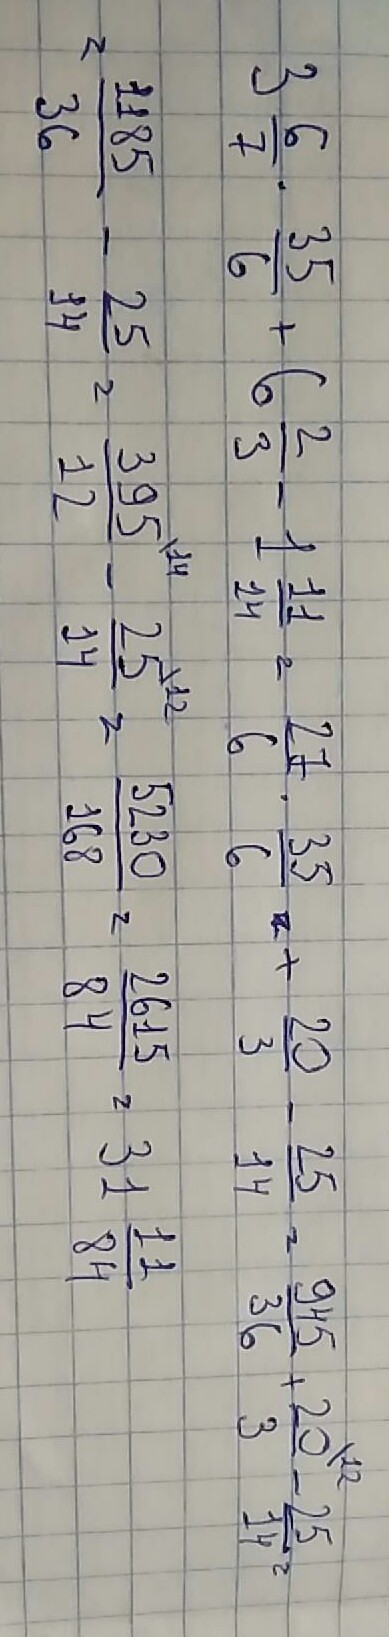 3 6/7 · 35/6 + 6 2/3 - 1 11/14 = 27/6 · 35/6 + 20/3 - 25/14 = 945/36 + 20/3 \12 - 25/14 =
= 1185/36 - 25/14 = 395/12 \14 - 25/14 \12 = 5230/168 = 2615/84 = 31 11/84